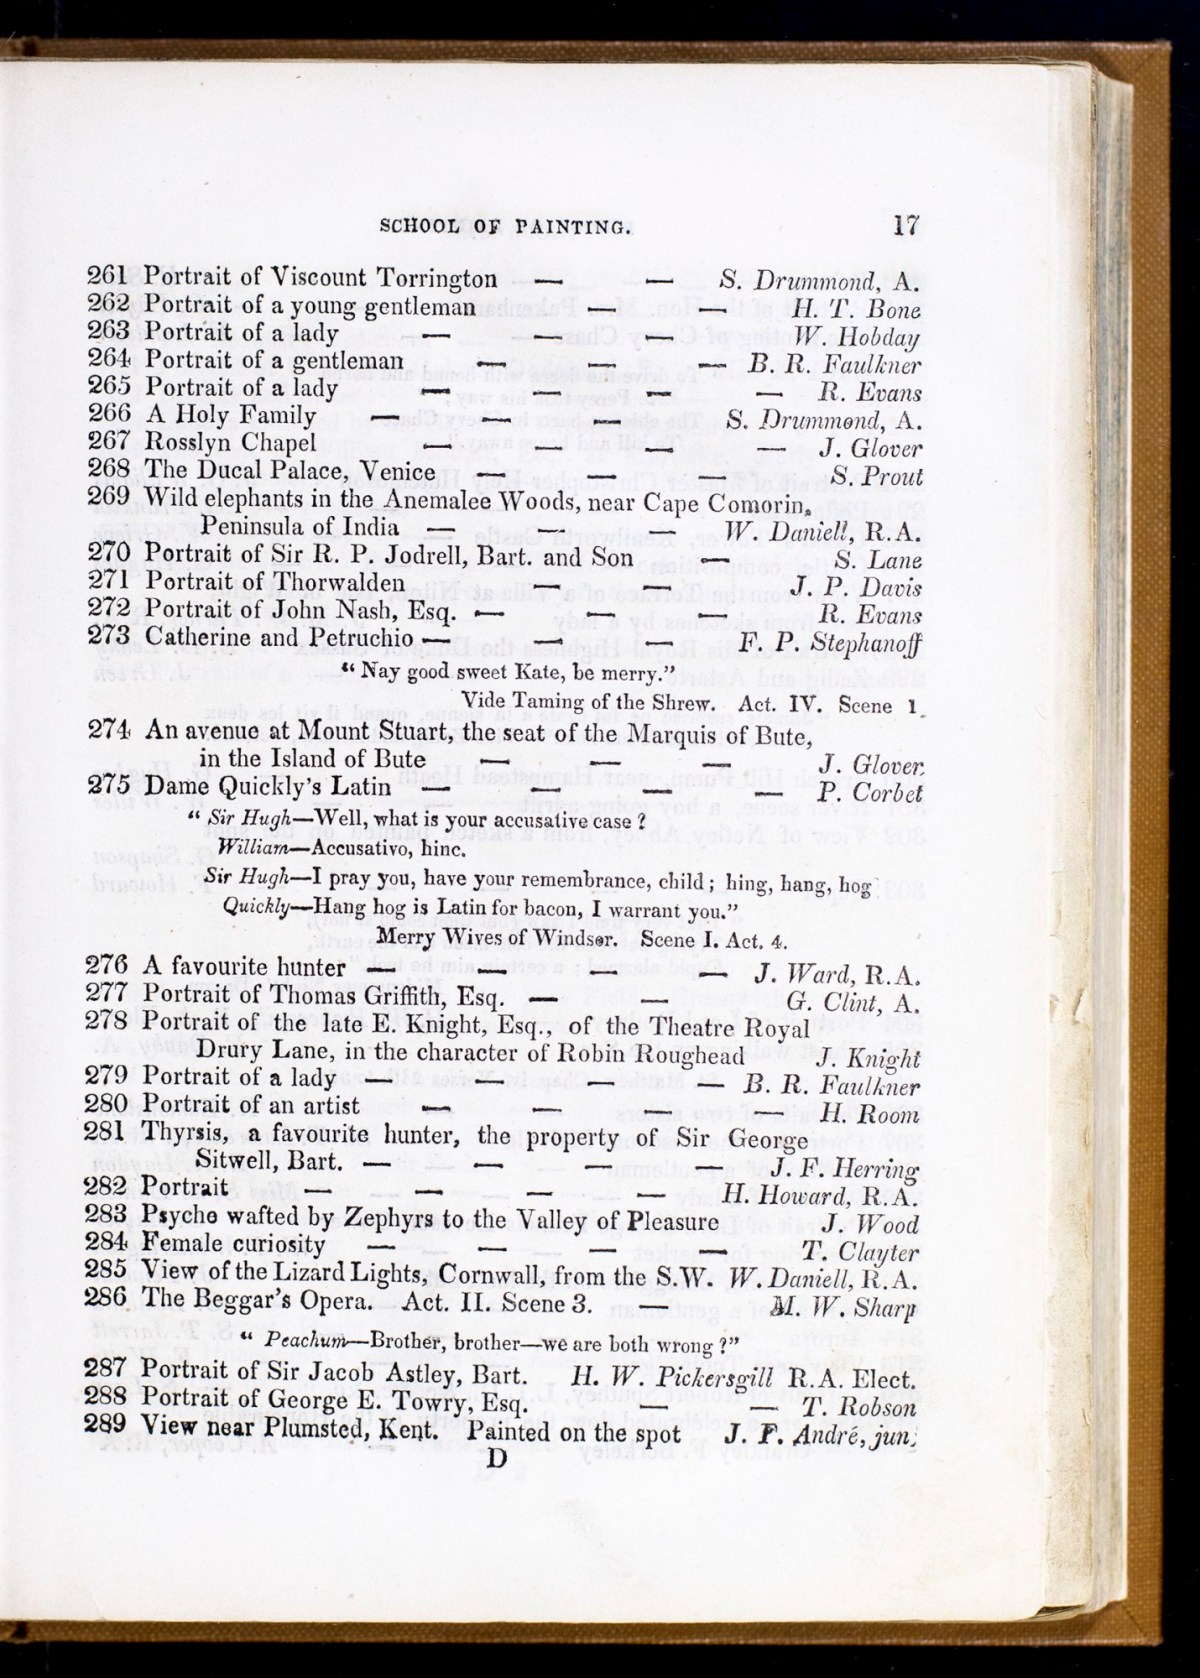 SCHOOL OF PAINTING. 17
261 Portrait of Viscount Torrington — — S. Drummond, A.
262 Portrait of a young gentleman — — H. T. Bone
263 Portrait of a lady — — — W. Hobday
264 Portrait of a gentleman — — — B. R. Faulkner
265 Portrait of a lady — — — — R. Evans
266 A Holy Family — — — S. Drummond, A.
267 Rosslyn Chapel — — — — J. Glover
268 The Ducal Palace, Venice — — — S. Prout
269 Wild elephants in the Anemalee Woods, near Cape Comorin,
Peninsula of India — — — W. Daniell, R.A.
270 Portrait of Sir R. P. Jodrell, Bart. and Son — S. Lane
271 Portrait of Thorwalden — — J. P. Davis
272 Portrait of John Nash, Esq. — — — R. Evans
273 Catherine and Petruchio — — — F. P. Stephanoff
“ Nay good sweet Kate, be merry.”
Vide Taming of the Shrew. Act. IV. Scene 1.
274 An avenue at Mount Stuart, the seat of the Marquis of Bute,
in the Island of Bute — — — J. Glover
275 Dame Quickly’s Latin — — — — P. Corbet
“ Sir Hugh—Well, what is your accusative case ?
William—Accusativo, hinc.
Sir Hugh—I pray you, have your remembrance, child ; hing, hang, hog
Quickly—Hang hog is Latin for bacon, I warrant you.”
Merry Wives of Windsor. Scene I. Act. 4.
276 A favourite hunter — — — — J. Ward, R.A.
277 Portrait of Thomas Griffith, Esq. — — G. Clint, A.
278 Portrait of the late E. Knight, Esq., of the Theatre Royal
Drury Lane, in the character of Robin Roughead J. Knight
279 Portrait of a lady — — — — B. R. Faulkner
280 Portrait of an artist — — — — H. Room
281 Thyrsis, a favourite hunter, the property of Sir George
Sitwell, Bart. — — — — J. F. Herring
282 Portrait — — — — H. Howard, R.A.
283 Psyche wafted by Zephyrs to the Valley of Pleasure J. Wood
284 Female curiosity — — — — T. Clayter
285 View of the Lizard Lights, Cornwall, from the S.W. W. Daniell, R.A.
286 The Beggar’s Opera. Act. II. Scene 3. — M. W. Sharp
“ Peachum—Brother, brother—we are both wrong ?”
287 Portrait of Sir Jacob Astley, Bart. H. W. Pickersgill R.A. Elect.
288 Portrait of George E. Towry, Esq. — — T. Robson
289 View near Plumsted, Kent. Painted on the spot J. F. André, jun.
D